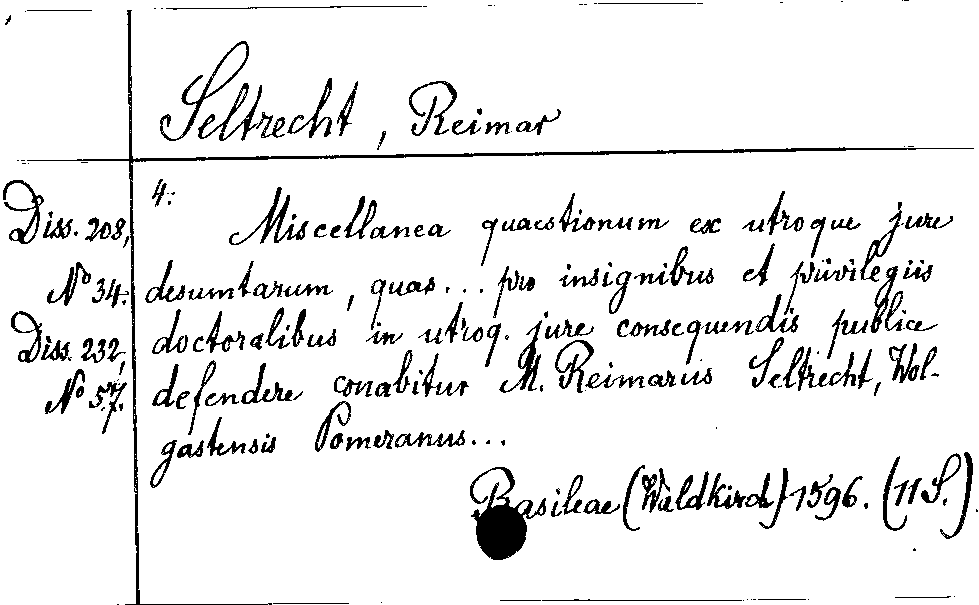 Seltrecht, Reimar
4:
Diss. 208,
Nº 34:
Diss. 232,
Nº 57.
Miscellanea quaestionum ex utroque jure
desumtarum, quas... pro insignibus et privilegiis
doctoralibus in utroq. jure consequendis publice
defendere conabitur M. Reimarus Seltrecht, Wol-
gastensis Pomeranus...
Basileae (Waldkirch) 1596. (11 S.)